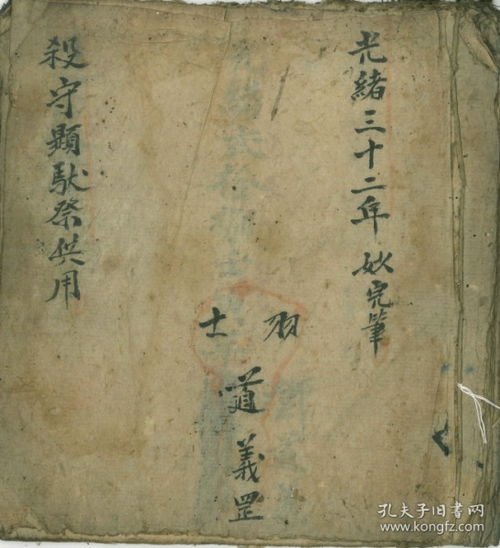 光緒三十二年 妙完筆
羽士
道義罡
殺守顯馱祭供用
孔夫子旧书网
www.kongfz.com